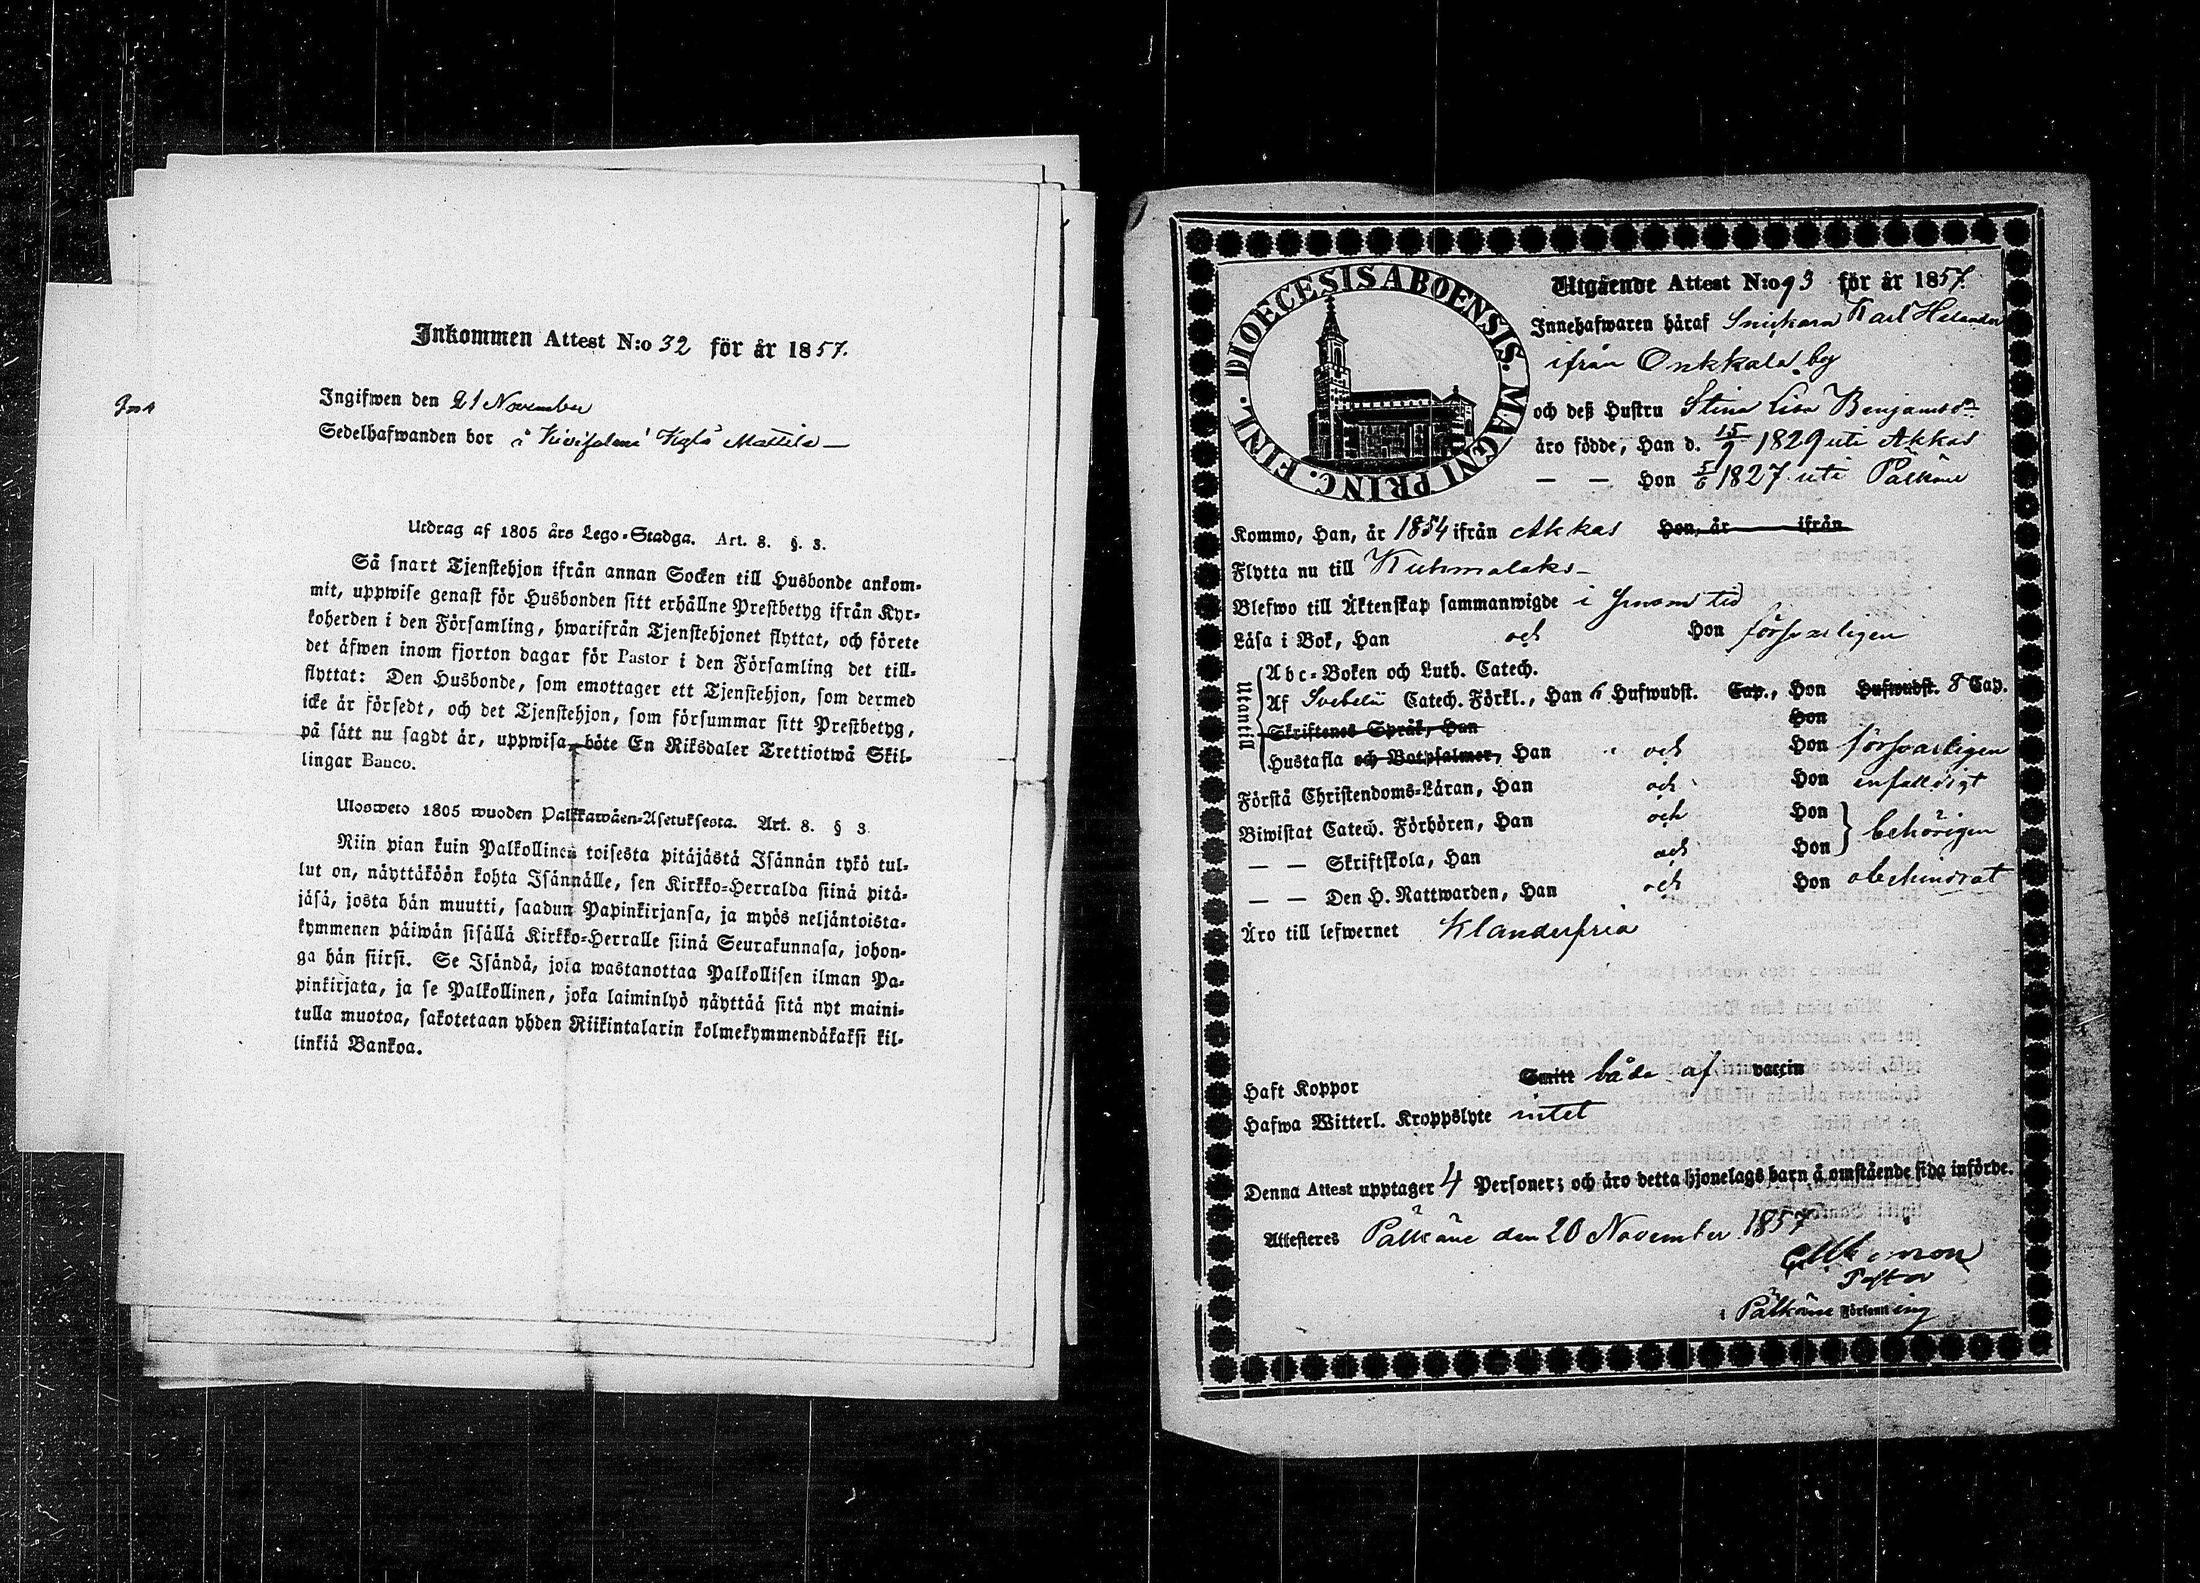 Inkommen Attest N:o 32 för år 1857.
Ingifwen den 21 November
Sedelhafwanden bor i Mattila
Utdrag af 1805 års Lego-Stadga. Art. 8. §. 3.
Så snart Tjenstehjon ifrån annan Socken till Husbonde ankom-
mit, uppwise genast för Husbonden sitt erhållne Prestbetyg ifrån Kyr-
koherden i den Församling, hwarifrån Tjenstehjonet flyttat, och förete
det äfwen inom fjorton dagar för Pastor i den Församling det till-
flyttat: Den Husbonde, som emottager ett Tjenstehjon, som dermed
icke är försedt, och det Tjenstehjon, som försummar sitt Prestbetyg,
på sätt nu sagdt är, uppwisa, böte En Riksdaler Trettiotwå Skil-
lingar Banco.
Ulosweto 1805 wuoden Palkkawäen-Asetuksesta. Art. 8. § 3.
Niin pian kuin Palkollinen toisesta pitäjästä Isännän tykö tul-
lut on, näyttäköön kohta Isännälle, sen Kirkko-Herralda siinä pitä-
jäsä, josta hän muutti, saadun Papinkirjansa, ja myös neljäntoista-
kymmenen päiwän sisällä Kirkko-Herralle siinä Seurakunnasa, johon-
ga hän siirsi. Se Isändä, joka wastanottaa Palkollisen ilman Pa-
pinkirjata, ja se Palkollinen, joka laiminlyö näyttää sitä nyt maini-
tulla muotoa, sakotetaan yhden Riikintalarin kolmekymmendäkaksi kil-
linkiä Bankoa.
DIOECESIS ABOENSIS. MAGNI PRINC. FINL.
Utgående Attest N:o 93 för år 1857.
Innehafwaren häraf Snickaren Karl Helander
ifrån Onkkala by
och deß Hustru Stina Lisa Benjamsdr
äro födde, Han d. 15/9 1829 uti Akkas
— — Hon 5/6 1827 uti Pälkäne
Kommo, Han, år 1854 ifrån Akkas Hon, år ifrån
Flytta nu till Kuhmalaks
Blefwo till Äktenskap sammanwigde i sinom tid
Läsa i Bok, Han och Hon försvarligen
Utantill
Abc-Boken och Luth. Catech.
Af Svebelii Catech. Förkl., Han 6 Hufwudst. Cap., Hon Hufwudst. 8 Cap.
Skriftenes Språk, Han Hon
Hustafla och Botpsalmer, Han och Hon försvarligen
Förstå Christendoms-Läran, Han och Hon enfaldigt
Biwistat Catech. Förhören, Han och Hon
behörigen
— — Skriftskola, Han och Hon
— — Den H. Nattwarden, Han och Hon obehindrat
Äro till lefwernet Klanderfria
Haft Koppor Smitt båda af vaccin
Hafwa Witterl. Kroppslyte intet
Denna Attest upptager 4 Personer; och äro detta hjonelags barn å omstående sida införde.
Attesteres Pälkäne den 20 November 1857
Pastor
i Pälkäne Församling